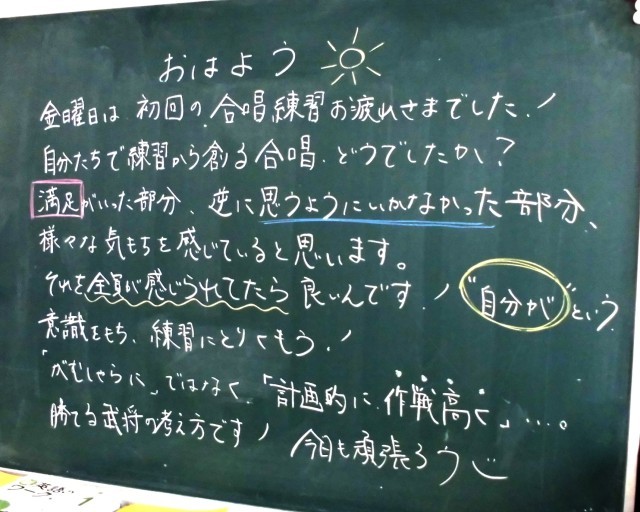 おはよう
金曜日は 初回の合唱練習お疲れさまでした!
自分たちで練習から創る合唱、どうでしたか?
満足がいった部分、逆に思うようにいかなかった部分、
様々な気もちを感じていると思います。
それを全員が感じられてたら 良いんです! "自分が"という
意識をもち、練習にとりくもう!
「がむしゃらに」ではなく、「計画的に 作戦高く」…。
勝てる武将の考え方です! 今日も頑張ろう